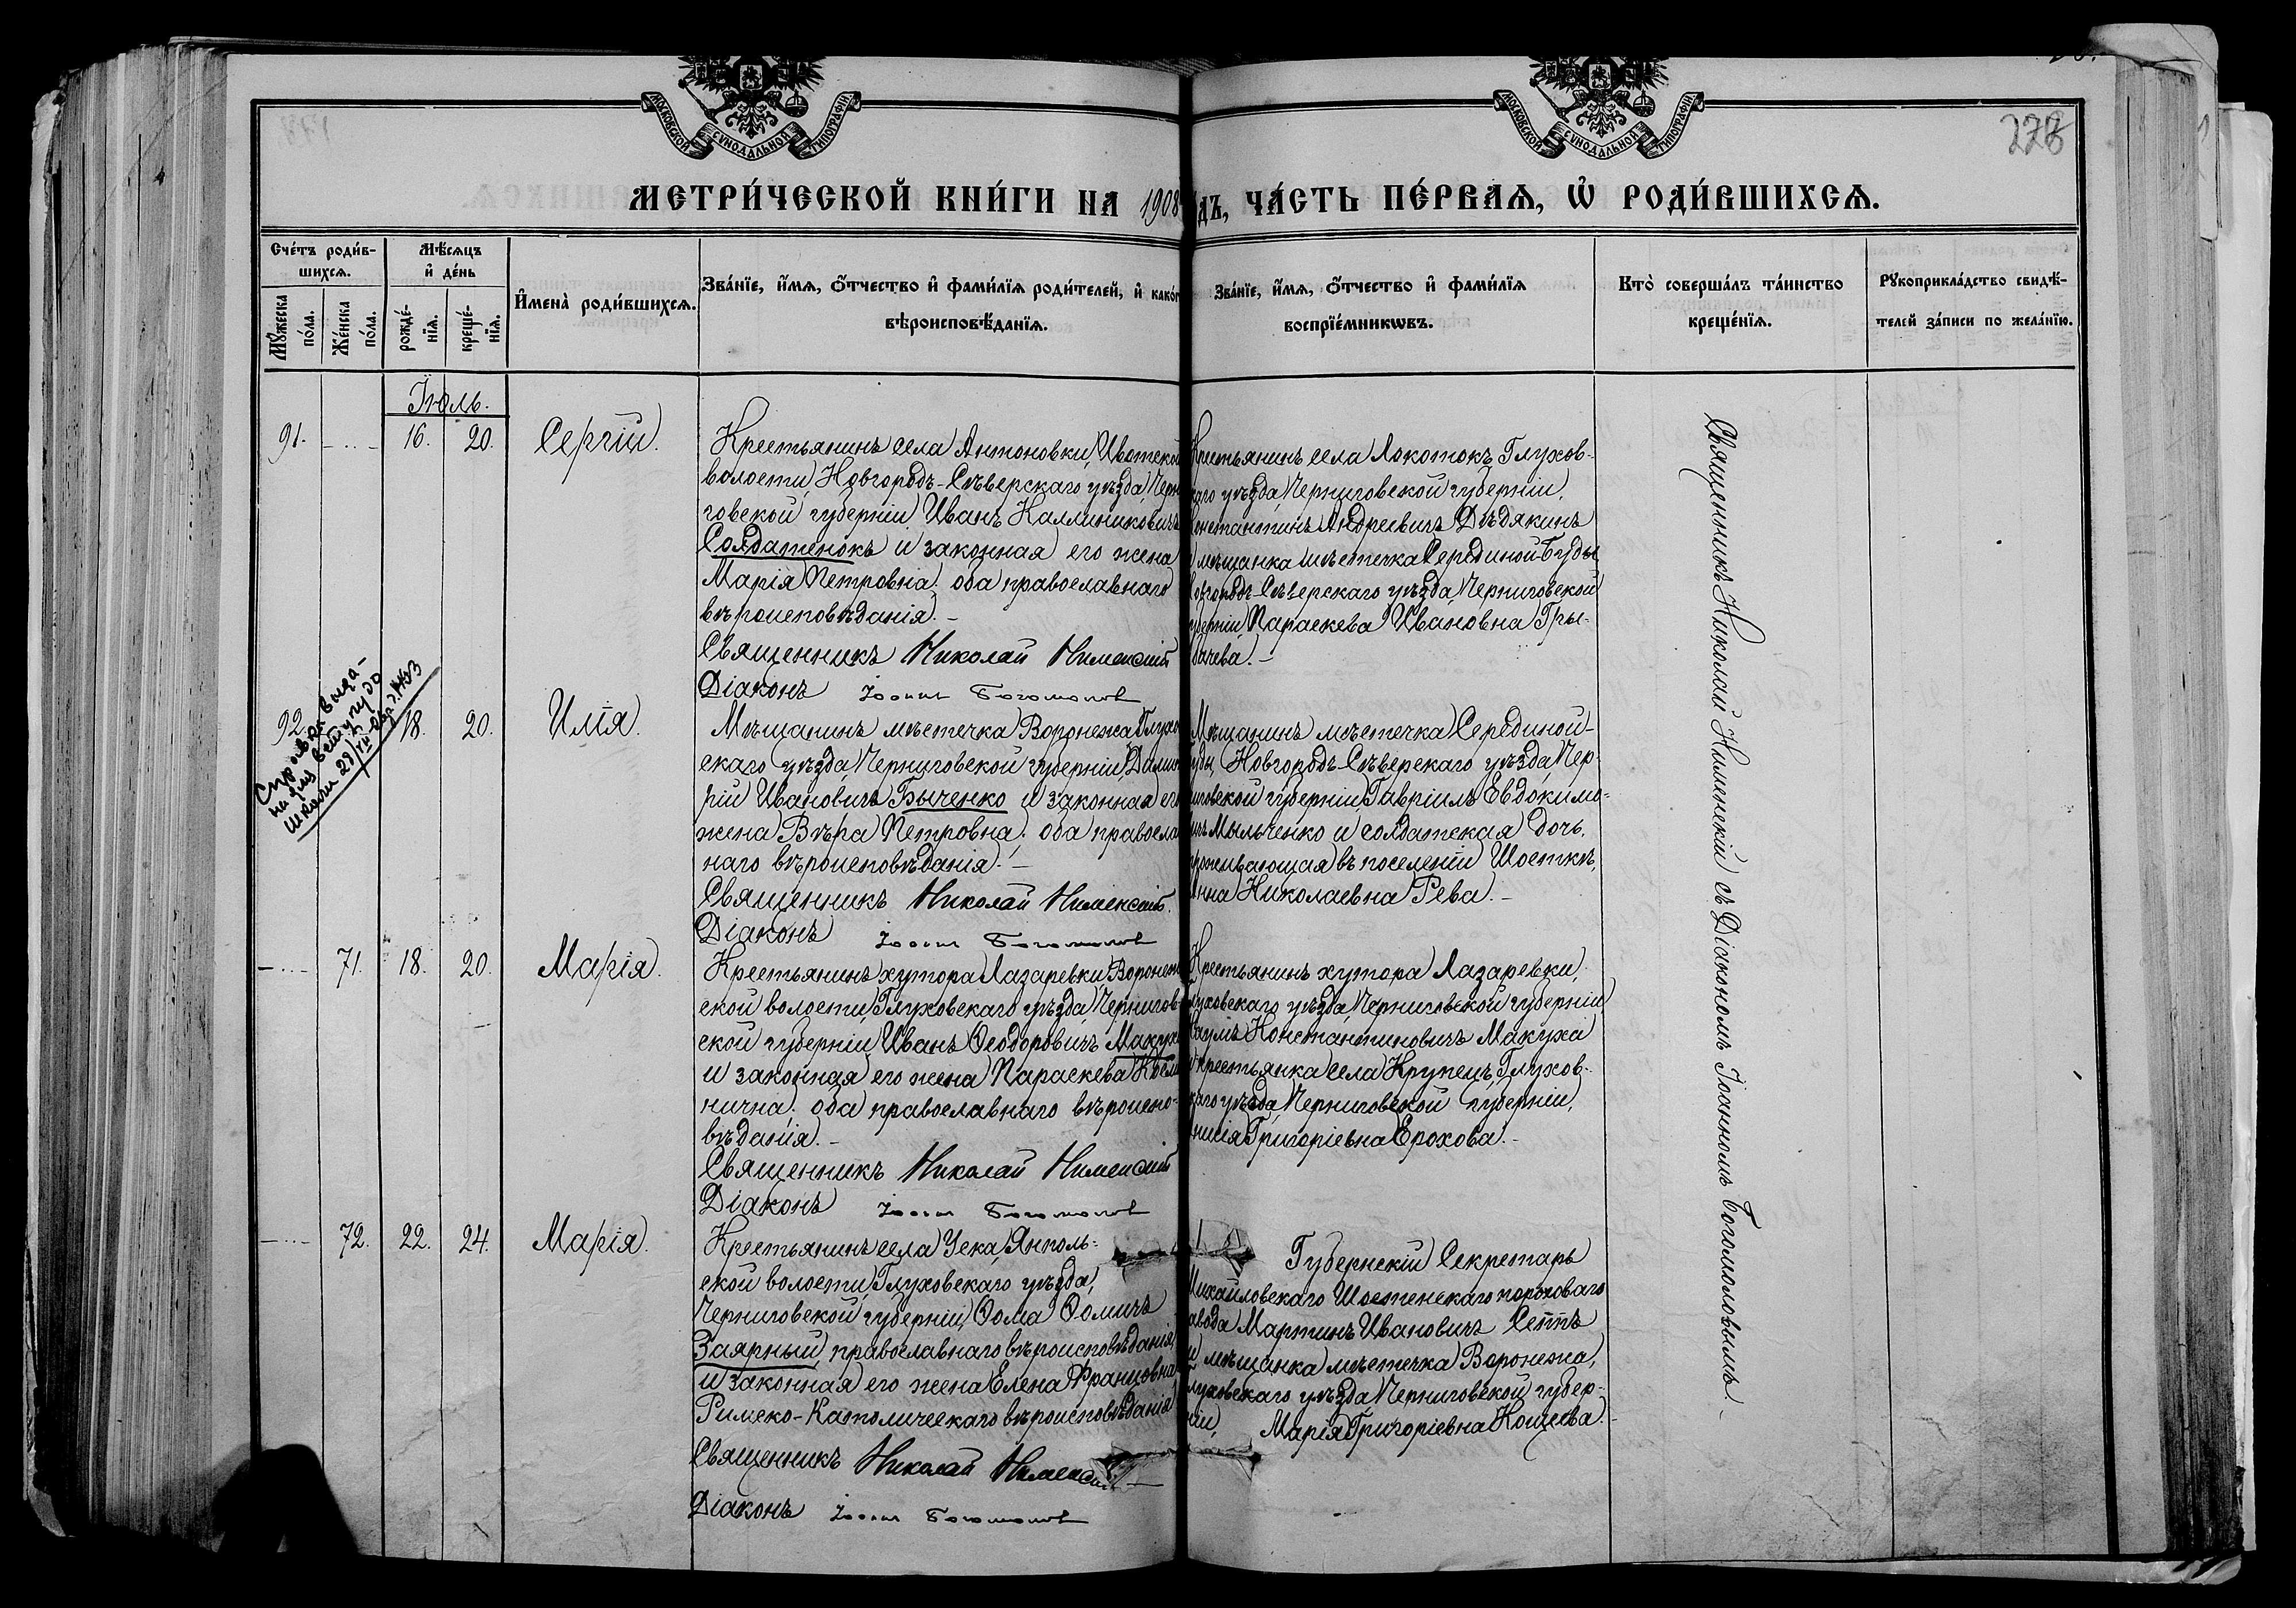 МОСКОВСКОЙ СѴНОДАЛЬНОЙ ТИПОГРАФІИ
МОСКОВСКОЙ СѴНОДАЛЬНОЙ ТИПОГРАФІИ
278
МЕТРИ́ЧЕСКОЙ КНИ́ГИ НА 1908 ДЪ, ЧА́СТЬ ПЕ́РВАѦ, Ѡ РОДИ́ВШИХСѦ.
Сче́тъ роди́в-
шихсѧ.
Мꙋ́жеска
по́ла.
Же́нска
по́ла.
Мѣ́сѧцъ
и҆ де́нь
рожде́-
нїѧ.
креще́-
нїѧ.
И҆мена̀ роди́вшихсѧ.
Зва́нїе, и҆́мѧ, ѻ҆́тчество и҆ фами́лїѧ роди́телей, и҆ како́г
вѣроисповѣ́данїѧ.
Зва́нїе, и҆́мѧ, ѻ҆́тчество и҆ фами́лїѧ
воспрїе́мникѡвъ.
Кто̀ соверша́лъ та́инство
креще́нїѧ.
Рꙋкоприкла́дство свидѣ́-
телей за́писи по жела́нїю.
Іюль.
91. 16. 20. Сергій.
Крестьянинъ села Антоновки, Ивотской
волости, Новгородъ-Сѣверскаго уѣзда, Черни
говской губерніи, Иванъ Каллиниковичъ
Солдатенокъ и законная его жена
Марія Петровна; оба православнаго
вѣроисповѣданія.-
Священникъ Николай Нименскій
Діаконъ Іоаннъ Богомоловъ
Крестьянинъ села Локотокъ, Глухов-
каго уѣзда, Черниговской губерніи,
онстантинъ Андреевичъ Дѣдякинъ
и мѣщанка мѣстечка Серединой-Буды
овгородъ-Сѣверскаго уѣзда, Черниговской
уберніи, Параскева Ивановна Гры-
бачева.-
Справка выда-
на для
школи
92. 18. 20. Илія.
Мѣщанинъ мѣстечка Воронежа, Глухо
скаго уѣзда, Черниговской губерніи,
рій Ивановичъ Быченко и законная его
жена Вѣра Петровна; оба правосла
наго вѣроисповѣданія.-
Священникъ Николай Нименскій.
Діаконъ Іоаннъ Богомоловъ
Мѣщанинъ мѣстечка Серединой-
уды, Новгородъ-Сѣверскаго уѣзда, Чер-
иговской губерніи, Гавріилъ Евдокимо-
ичъ Мыльченко и солдатская дочь,
проживающая въ поселеніи Шосткѣ,
Анна Николаевна Рева.-
71. 18. 20. Марія.
Крестьянинъ хутора Лазаревки, Воронеж
ской волости, Глуховскаго уѣзда, Чернигов-
ской губерніи, Иванъ Ѳеодоровичъ Макуха
и законная его жена Параскева Косми
нична; оба православнаго вѣроиспо-
вѣданія.-
Священникъ Николай Нименскій
Діаконъ Іоаннъ Богомоловъ
Крестьянинъ хутора Лазаревки,
луховскаго уѣзда, Черниговской губерніи
Наумъ Константиновичъ Макуха
и крестьянка села Крупецъ, Глухов-
каго уѣзда, Черниговской губерніи,
нисія Григоріевна Ерохова.-
72. 22. 24. Марія.
Крестьянинъ села Усека, Ямполь-
ской волости, Глуховскаго уѣзда,
Черниговской губерніи, Ѳома Ѳомичъ
Заярный, православнаго вѣроисповѣданія,
и законная его жена Елена Францовна
Римско-Католическаго вѣроисповѣданія
Священникъ Николай Нименскій
Діаконъ Іоаннъ Богомоловъ
Губернскій Секретарь
Михайловскаго Шостенскаго пороховаго
авода Мартинъ Ивановичъ Сеттъ
и мѣщанка мѣстечка Воронежа,
луховскаго уѣзда, Черниговской губер-
ніи, Марія Григоріевна Кощева.-
Священникъ Николай Нименскій съ Діакономъ Іоанномъ Богомоловымъ.